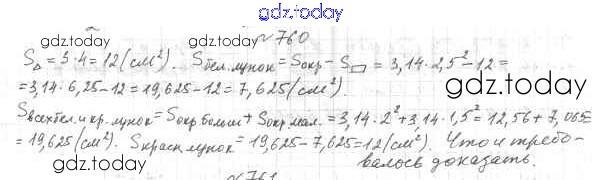 gdz.today
№760
gdz.today gdz.today
S△ = 3·4 = 12 (см²). Sбел.лунок = Sокр − S▭ = 3,14·2,5² − 12 =
= 3,14·6,25 − 12 = 19,625 − 12 = 7,625 (см²). gdz.today
Sвсех бел. и кр. лунок = Sокр больш + Sокр мал. = 3,14·2² + 3,14·1,5² = 12,56 + 7,065
= 19,625 (см²). Sкрасн лунок = 19,625 − 7,625 = 12 (см²). Что и требо-
валось доказать.
gdz.today gdz.today
№761